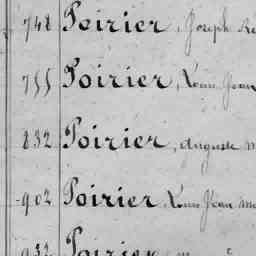 748 Poirier, Joseph
755 Poirier, Louis Jean
832 Poirier, auguste
902 Poirier, Louis Jean
932 Poirier